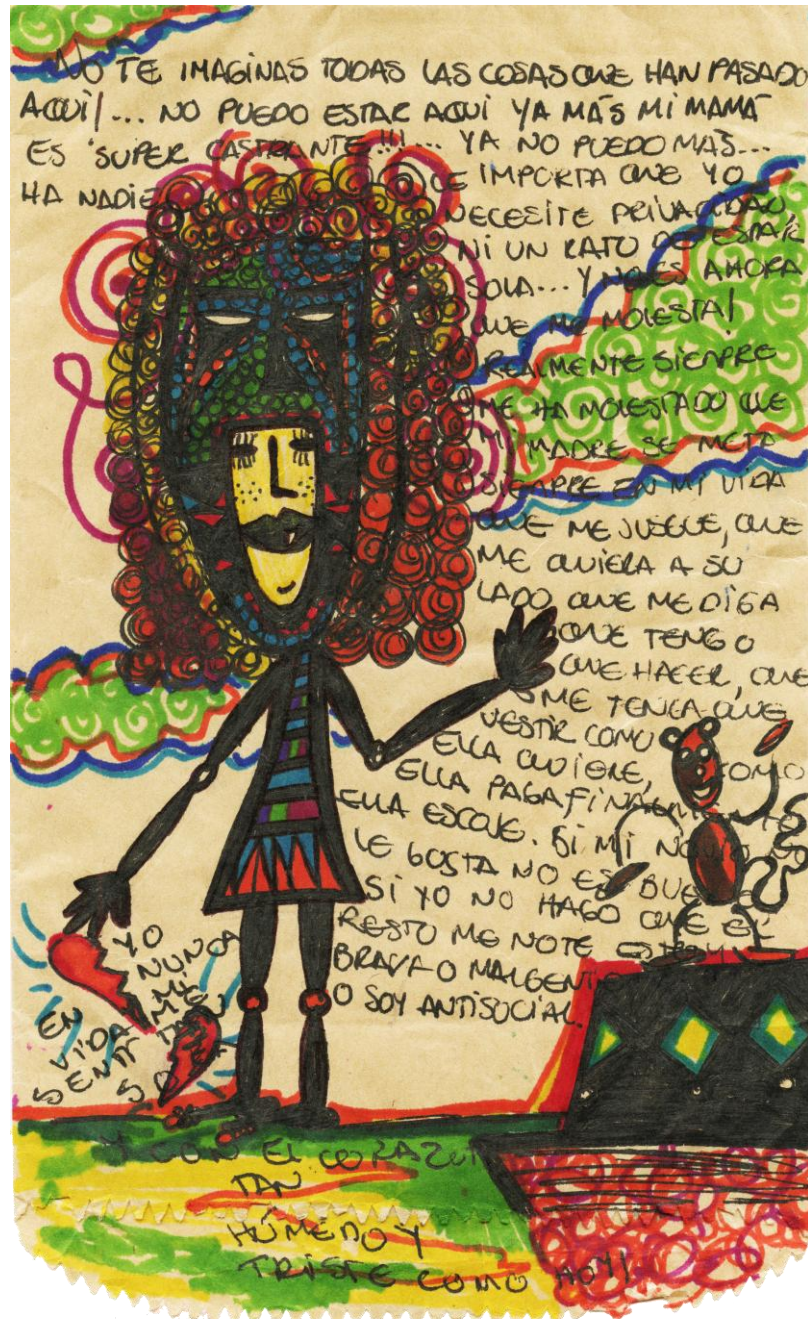 NO TE IMAGINAS TODAS LAS COSAS QUE HAN PASADO
AQUÍ!... NO PUEDO ESTAR AQUÍ YA MÁS MI MAMÁ
ES SUPER CASTRANTE!!!... YA NO PUEDO MAS...
HA NADIE LE IMPORTA QUE YO
NECESITE PRIVACIDAD,
NI UN RATO DE ESTAR
SOLA... Y NO ES AHORA
QUE ME MOLESTA!
REALMENTE SIEMPRE
ME HA MOLESTADO QUE
MI MADRE SE META
SIEMPRE EN MI VIDA
QUE ME JUSGUE, QUE
ME QUIERA A SU
LADO QUE ME DIGA
QUE TENGO
QUE HACER, QUE
ME TENGA QUE
VESTIR COMO
ELLA QUIERE, COMO
ELLA PAGA FINALMENTE
ELLA ESCOJE. SI MI NOVIO NO
LE GUSTA NO ES
SI YO NO HAGO QUE EL
RESTO ME NOTE
BRAVA O MALGENI
O SOY ANTISOCIAL.
YO
NUNCA
EN MI
VIDA ME
SENTI TAN
Y CON EL CORAZON
TAN
HÚMEDO Y
TRISTE COMO HOY!